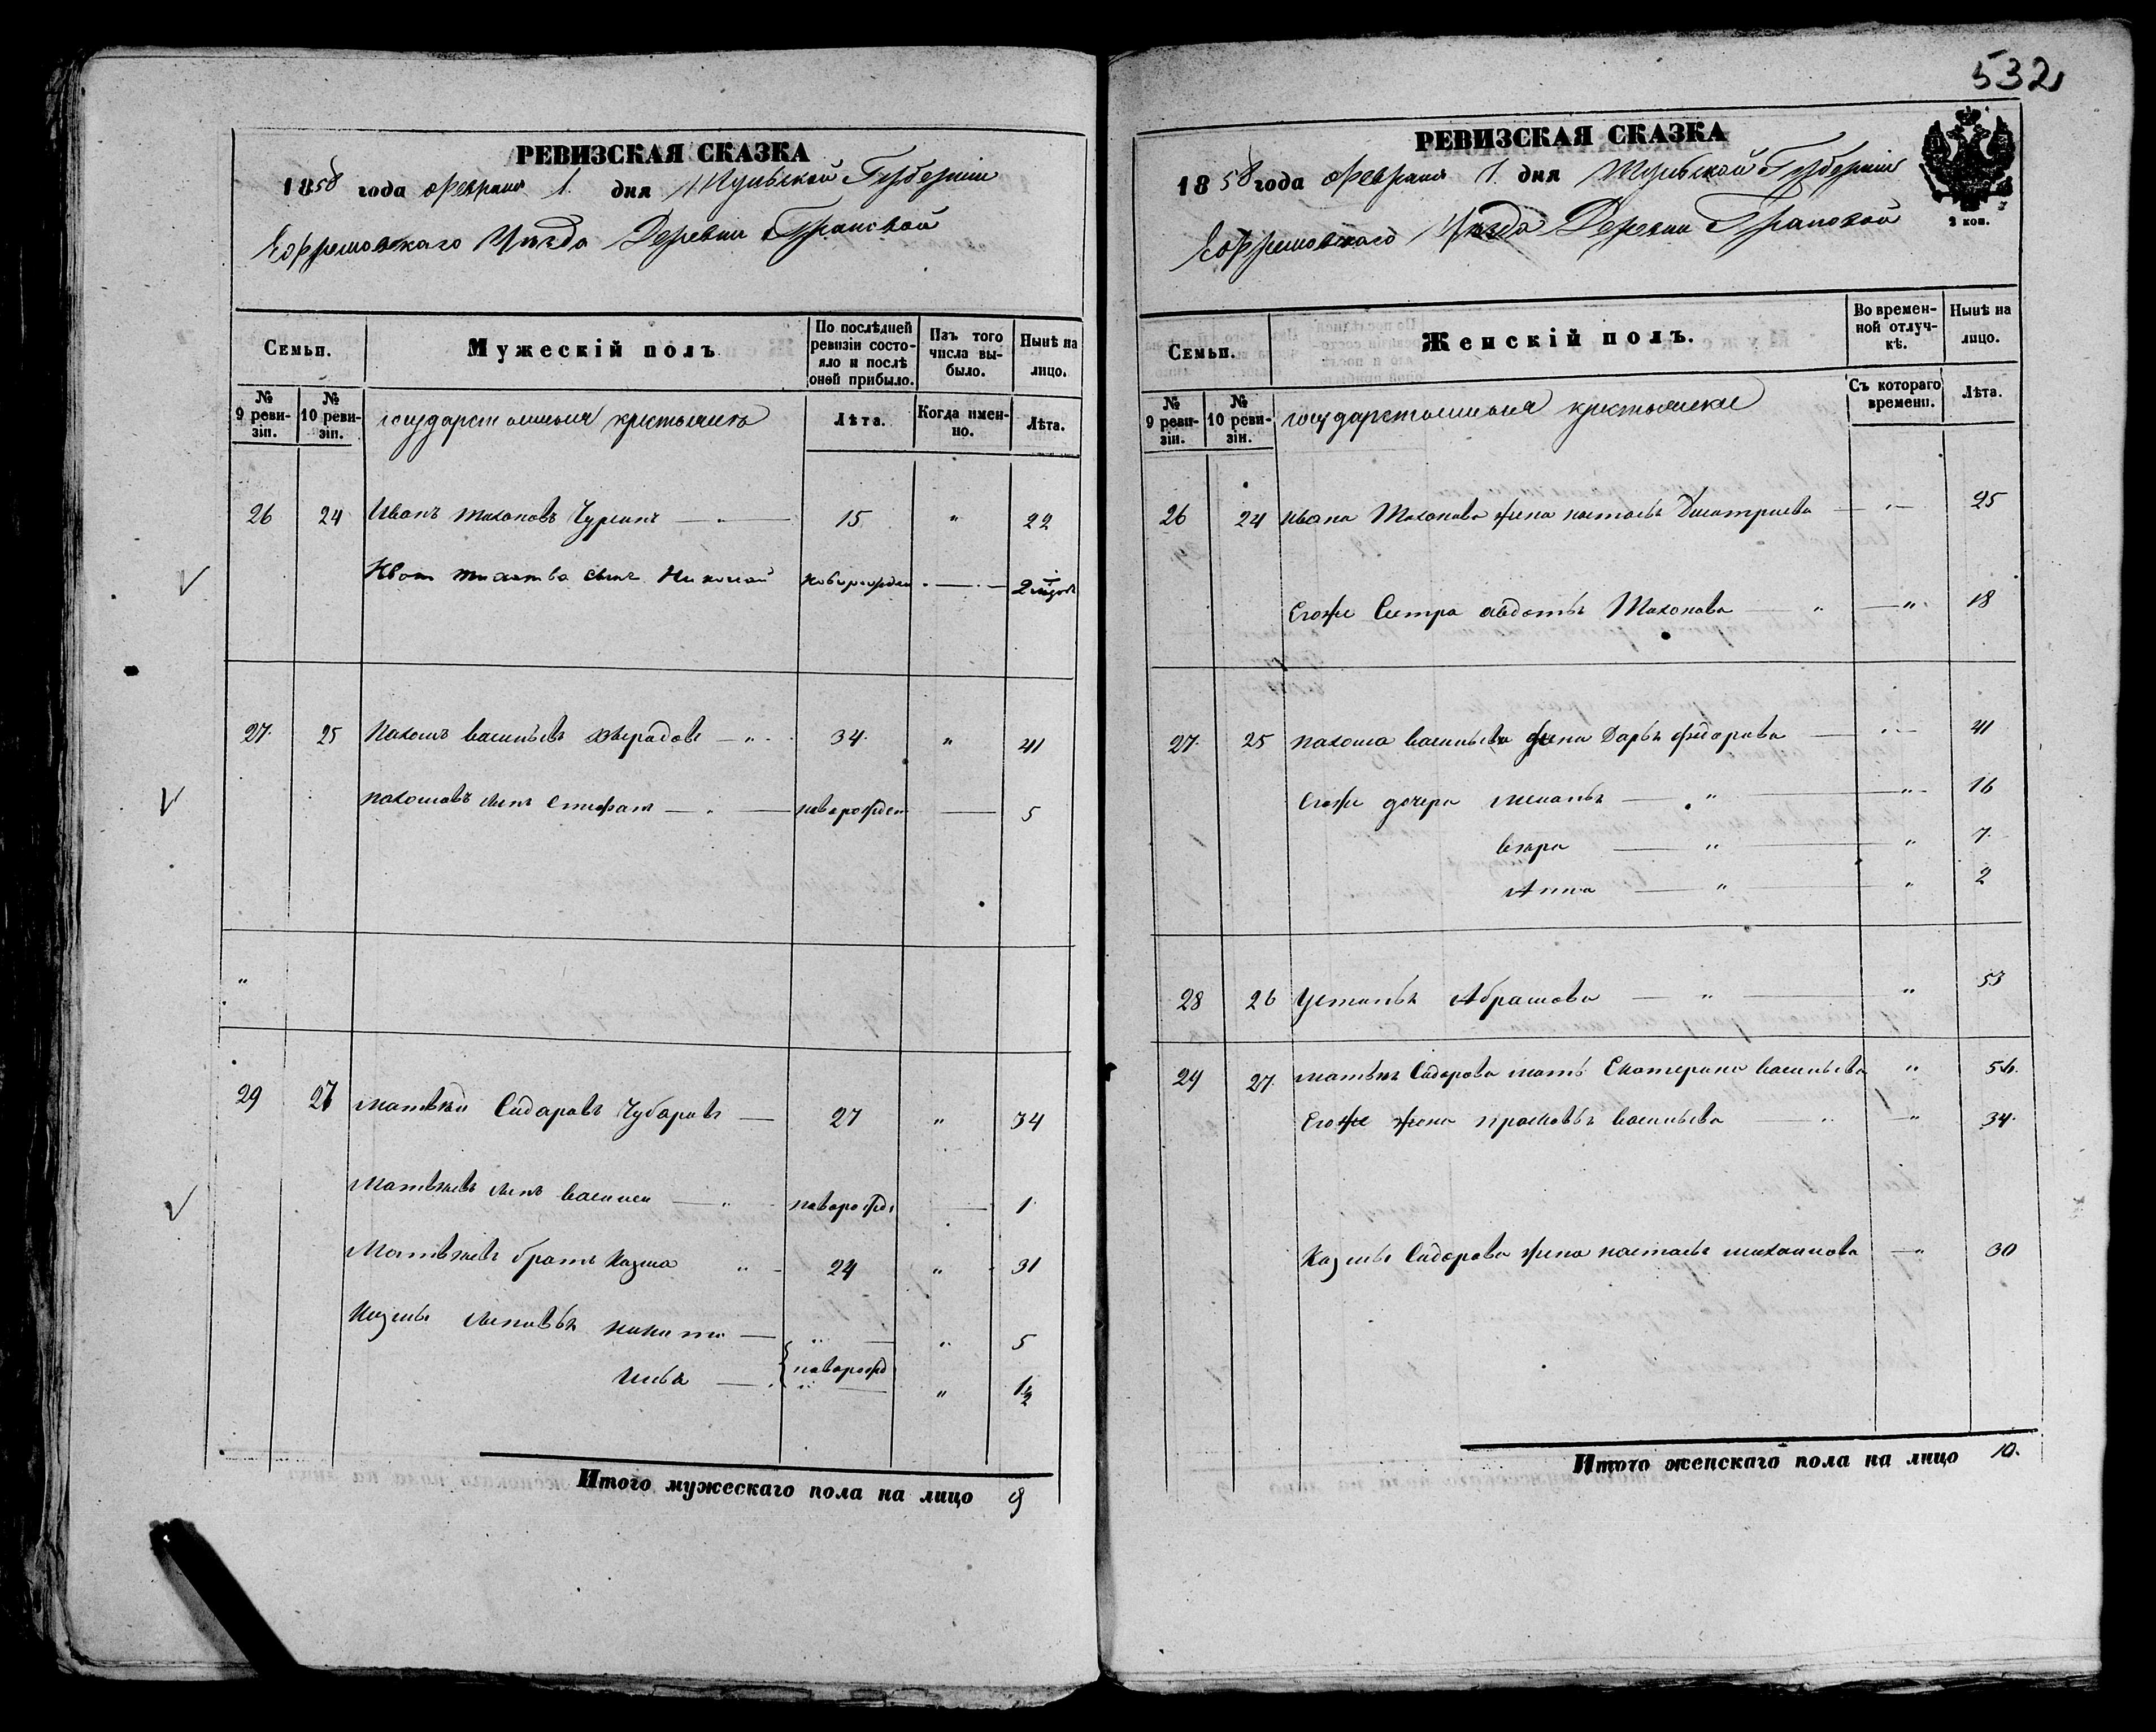 РЕВИЗСКАЯ СКАЗКА
1858 года Февраля 1. дня Тульской Губернии
Ефремовскаго Уѣзда Деревни
Семьи.
Мужескій полъ
По послѣдней ревизіи состояло и послѣ оной прибыло.
Изъ того числа выбыло.
Нынѣ на лицо.
№ 9 ревизіи.
№ 10 ревизіи.
государственныя крестьянъ
Лѣта.
Когда именно.
Лѣта.
26 24 Иванъ Тихоновъ — " — 15 " 22
сынъ Николай — " —
27. 25 Пахомъ Васильевъ — " — 34. " 41
Пахомовъ сынъ — " — новорожден — 5
"
29 27 Матвѣй Сидаровъ Чубаровъ — 27 " 34
Матвѣевъ сынъ Василей — " — новорожд — 1
Матвѣевъ братъ Казма " 24 " 31
Казмы сыновья Никита — " — " 5
Илья — новорожд " 1½
Итого мужескаго пола на лицо 9
532
РЕВИЗСКАЯ СКАЗКА
1858 года Февраля 1. дня Тульской Губернии
2 коп.
Ефремовскаго Уѣзда Деревни
Семьи.
Женскій полъ.
Во временной отлучкѣ.
Нынѣ на лицо.
№ 9 ревизіи.
№ 10 ревизіи.
государственныя крестьянки
Съ котораго времени.
Лѣта.
26 24 Ивана Тихонова жена Настасья Дмитриева — " — 25
Егоже Сестра Авдотья Тихонова " — " 18
27. 25 Пахома Васильева жена Дарья Федорова — " — 41
Егоже дочери — " — " 16
Вѣра — " — " 7.
Анна — " — " 2
28 26 Устинья Абрамова — " — " 53
29 27. Матвѣя Сидорова мать Екатерина Васильева " 56.
Егоже жена Прасковья Васильева — " — " 34.
Казмы Сидорова жена Настасья Михаилова — " 30
Итого женскаго пола на лицо 10.